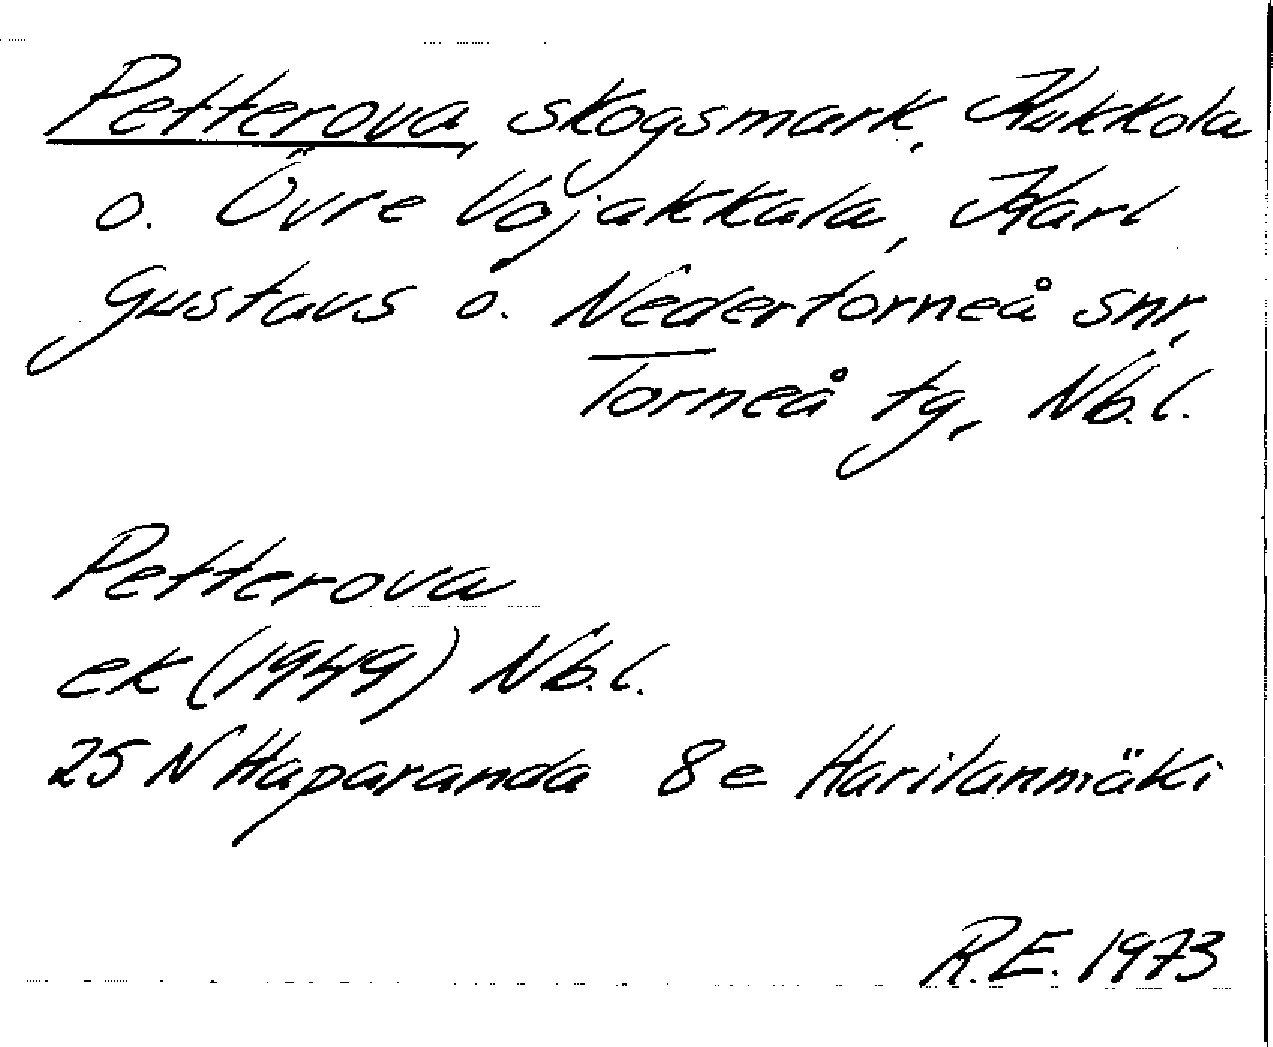 Petterova, skogsmark, Kukkola
o. Övre Vojakkala, Karl
Gustavs o. Nedertorneå snr,
Torneå tg, Nb.l.
Petterova
ek (1949) Nb.l.
25 N Haparanda 8e Harilanmäki
R.E. 1973